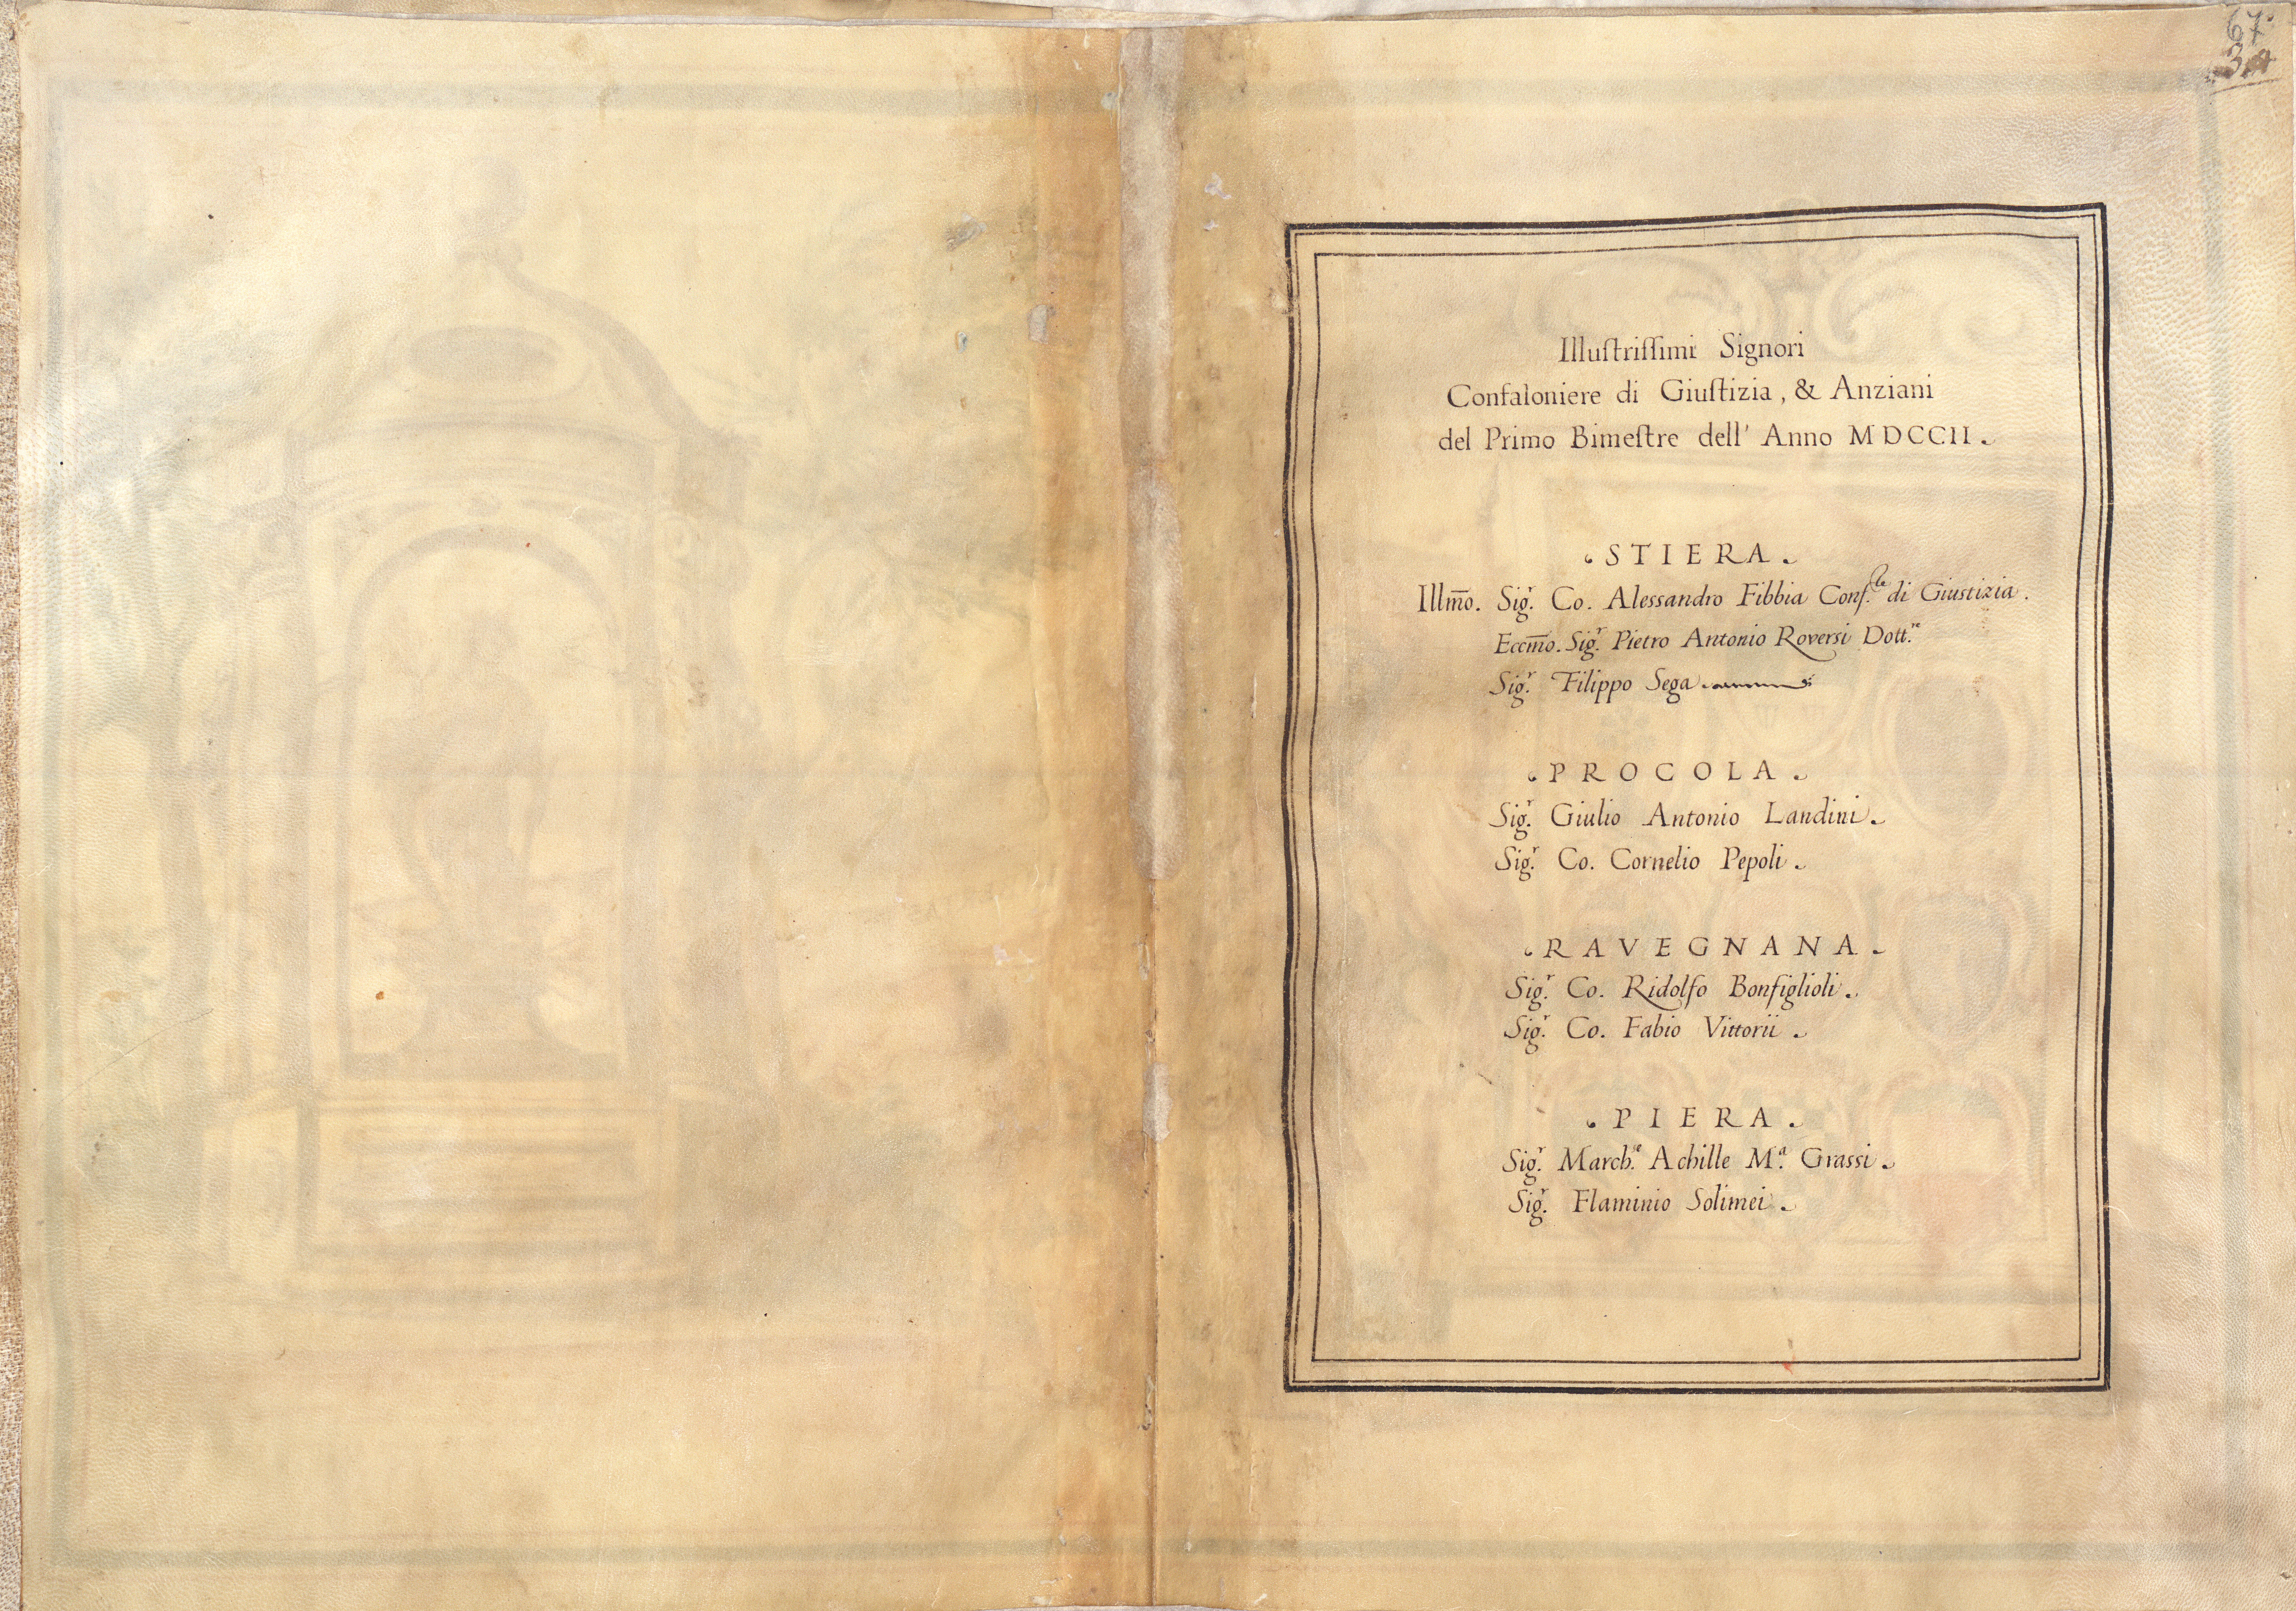 67.
Illuſtriſſimi Signori
Confaloniere di Giuſtizia, & Anziani
del Primo Bimeſtre dell' Anno MDCCII.
STIERA.
Illm̅o. Sig.r Co. Alessandro Fibbia Conf.le di Giustizia.
Eccm̅o. Sig.r Pietro Antonio Roversi Dott.re
Sig.r Filippo Sega
PROCOLA.
Sig.r Giulio Antonio Landini.
Sig.r Co. Cornelio Pepoli.
RAVEGNANA.
Sig.r Co. Ridolfo Bonfiglioli.
Sig.r Co. Fabio Vittorii.
PIERA.
Sig.r March.e Achille M.a Grassi.
Sig.r Flaminio Solimei.